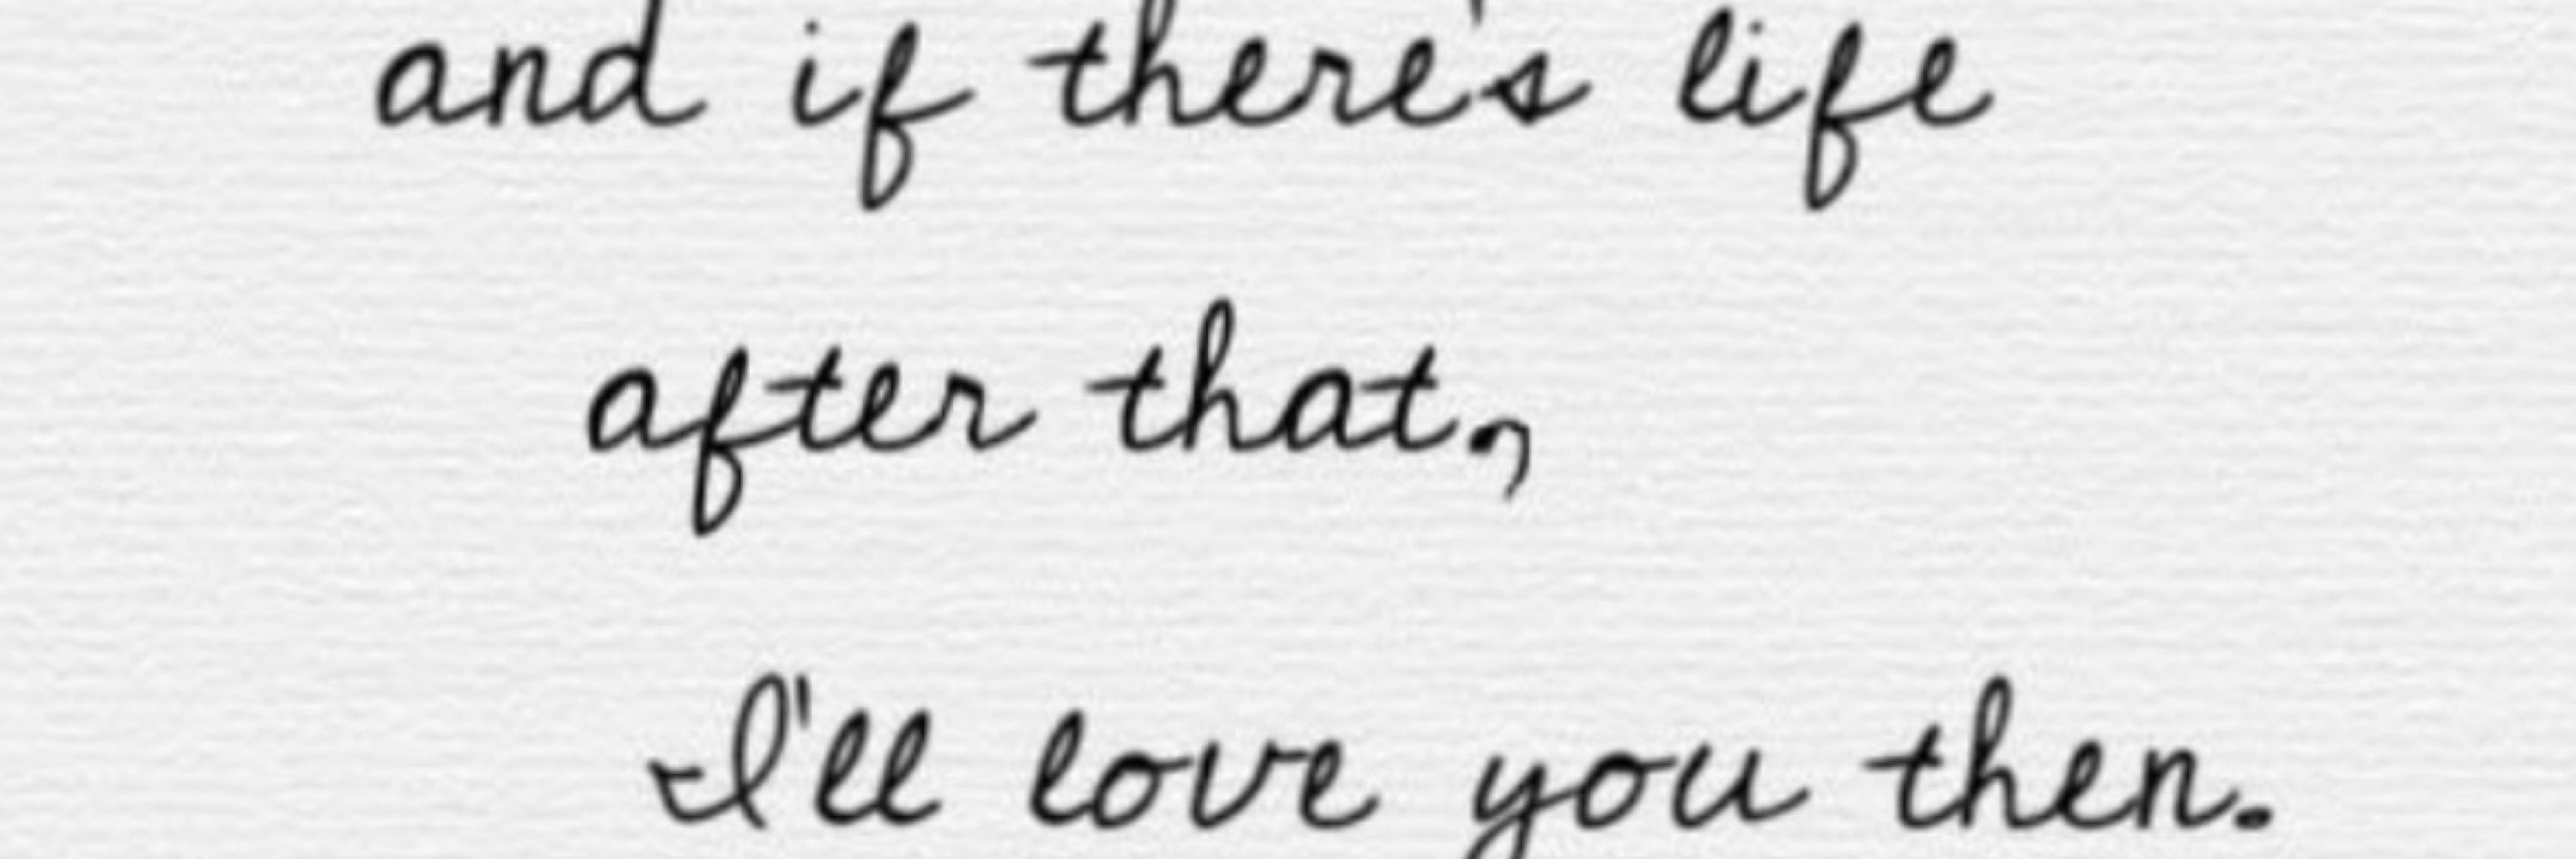 and if there's life
after that,
I'll love you then.